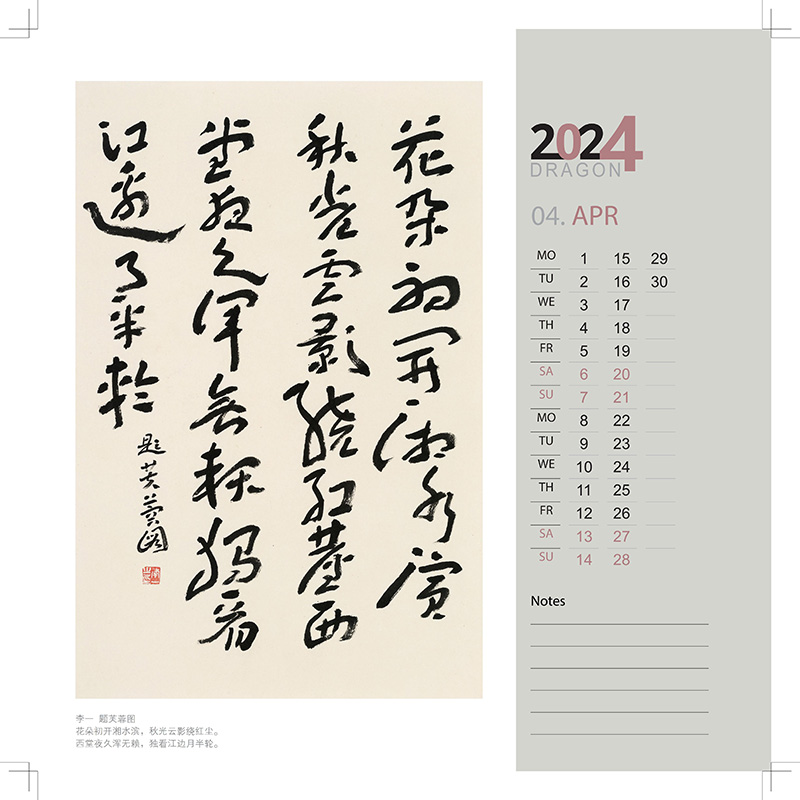 花朵初開湘水濱
秋光雲影繞紅塵西
堂夜久渾無賴獨看
江邊月半輪
題芙蓉圖
李一 题芙蓉图
花朵初开湘水滨，秋光云影绕红尘。
西堂夜久浑无赖，独看江边月半轮。
2024
DRAGON
04. APR
MO 1 15 29
TU 2 16 30
WE 3 17
TH 4 18
FR 5 19
SA 6 20
SU 7 21
MO 8 22
TU 9 23
WE 10 24
TH 11 25
FR 12 26
SA 13 27
SU 14 28
Notes